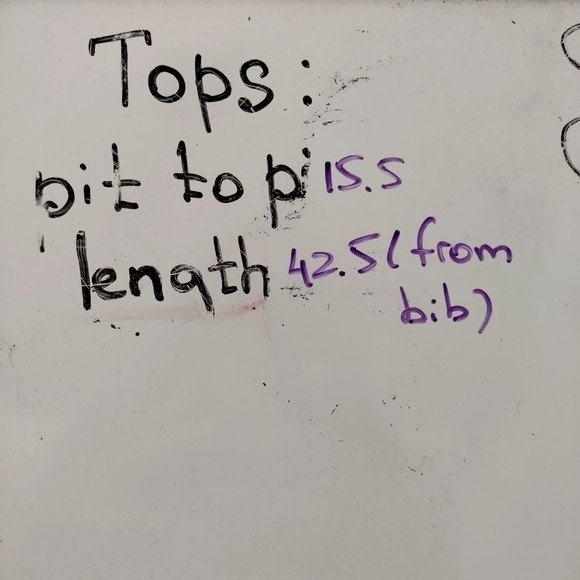 Tops:
pit to pi 15.5
length 42.5 (from
bib)